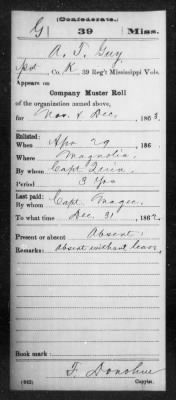 (Confederate.)
G 39 Miss.
A. T. Guy
Pvt, Co. K, 39 Reg't Mississippi Vols.
Appears on
Company Muster Roll
of the organization named above,
for Nov. & Dec., 1863.
Enlisted:
When Apr 29, 186
Where Magnolia
By whom Capt Quin
Period 3 Yrs
Last paid:
By whom Capt. Magee
To what time Dec. 31, 1862.
Present or absent Absent
Remarks: Absent without leave
Book mark:
(642) F. Donohue
Copyist.